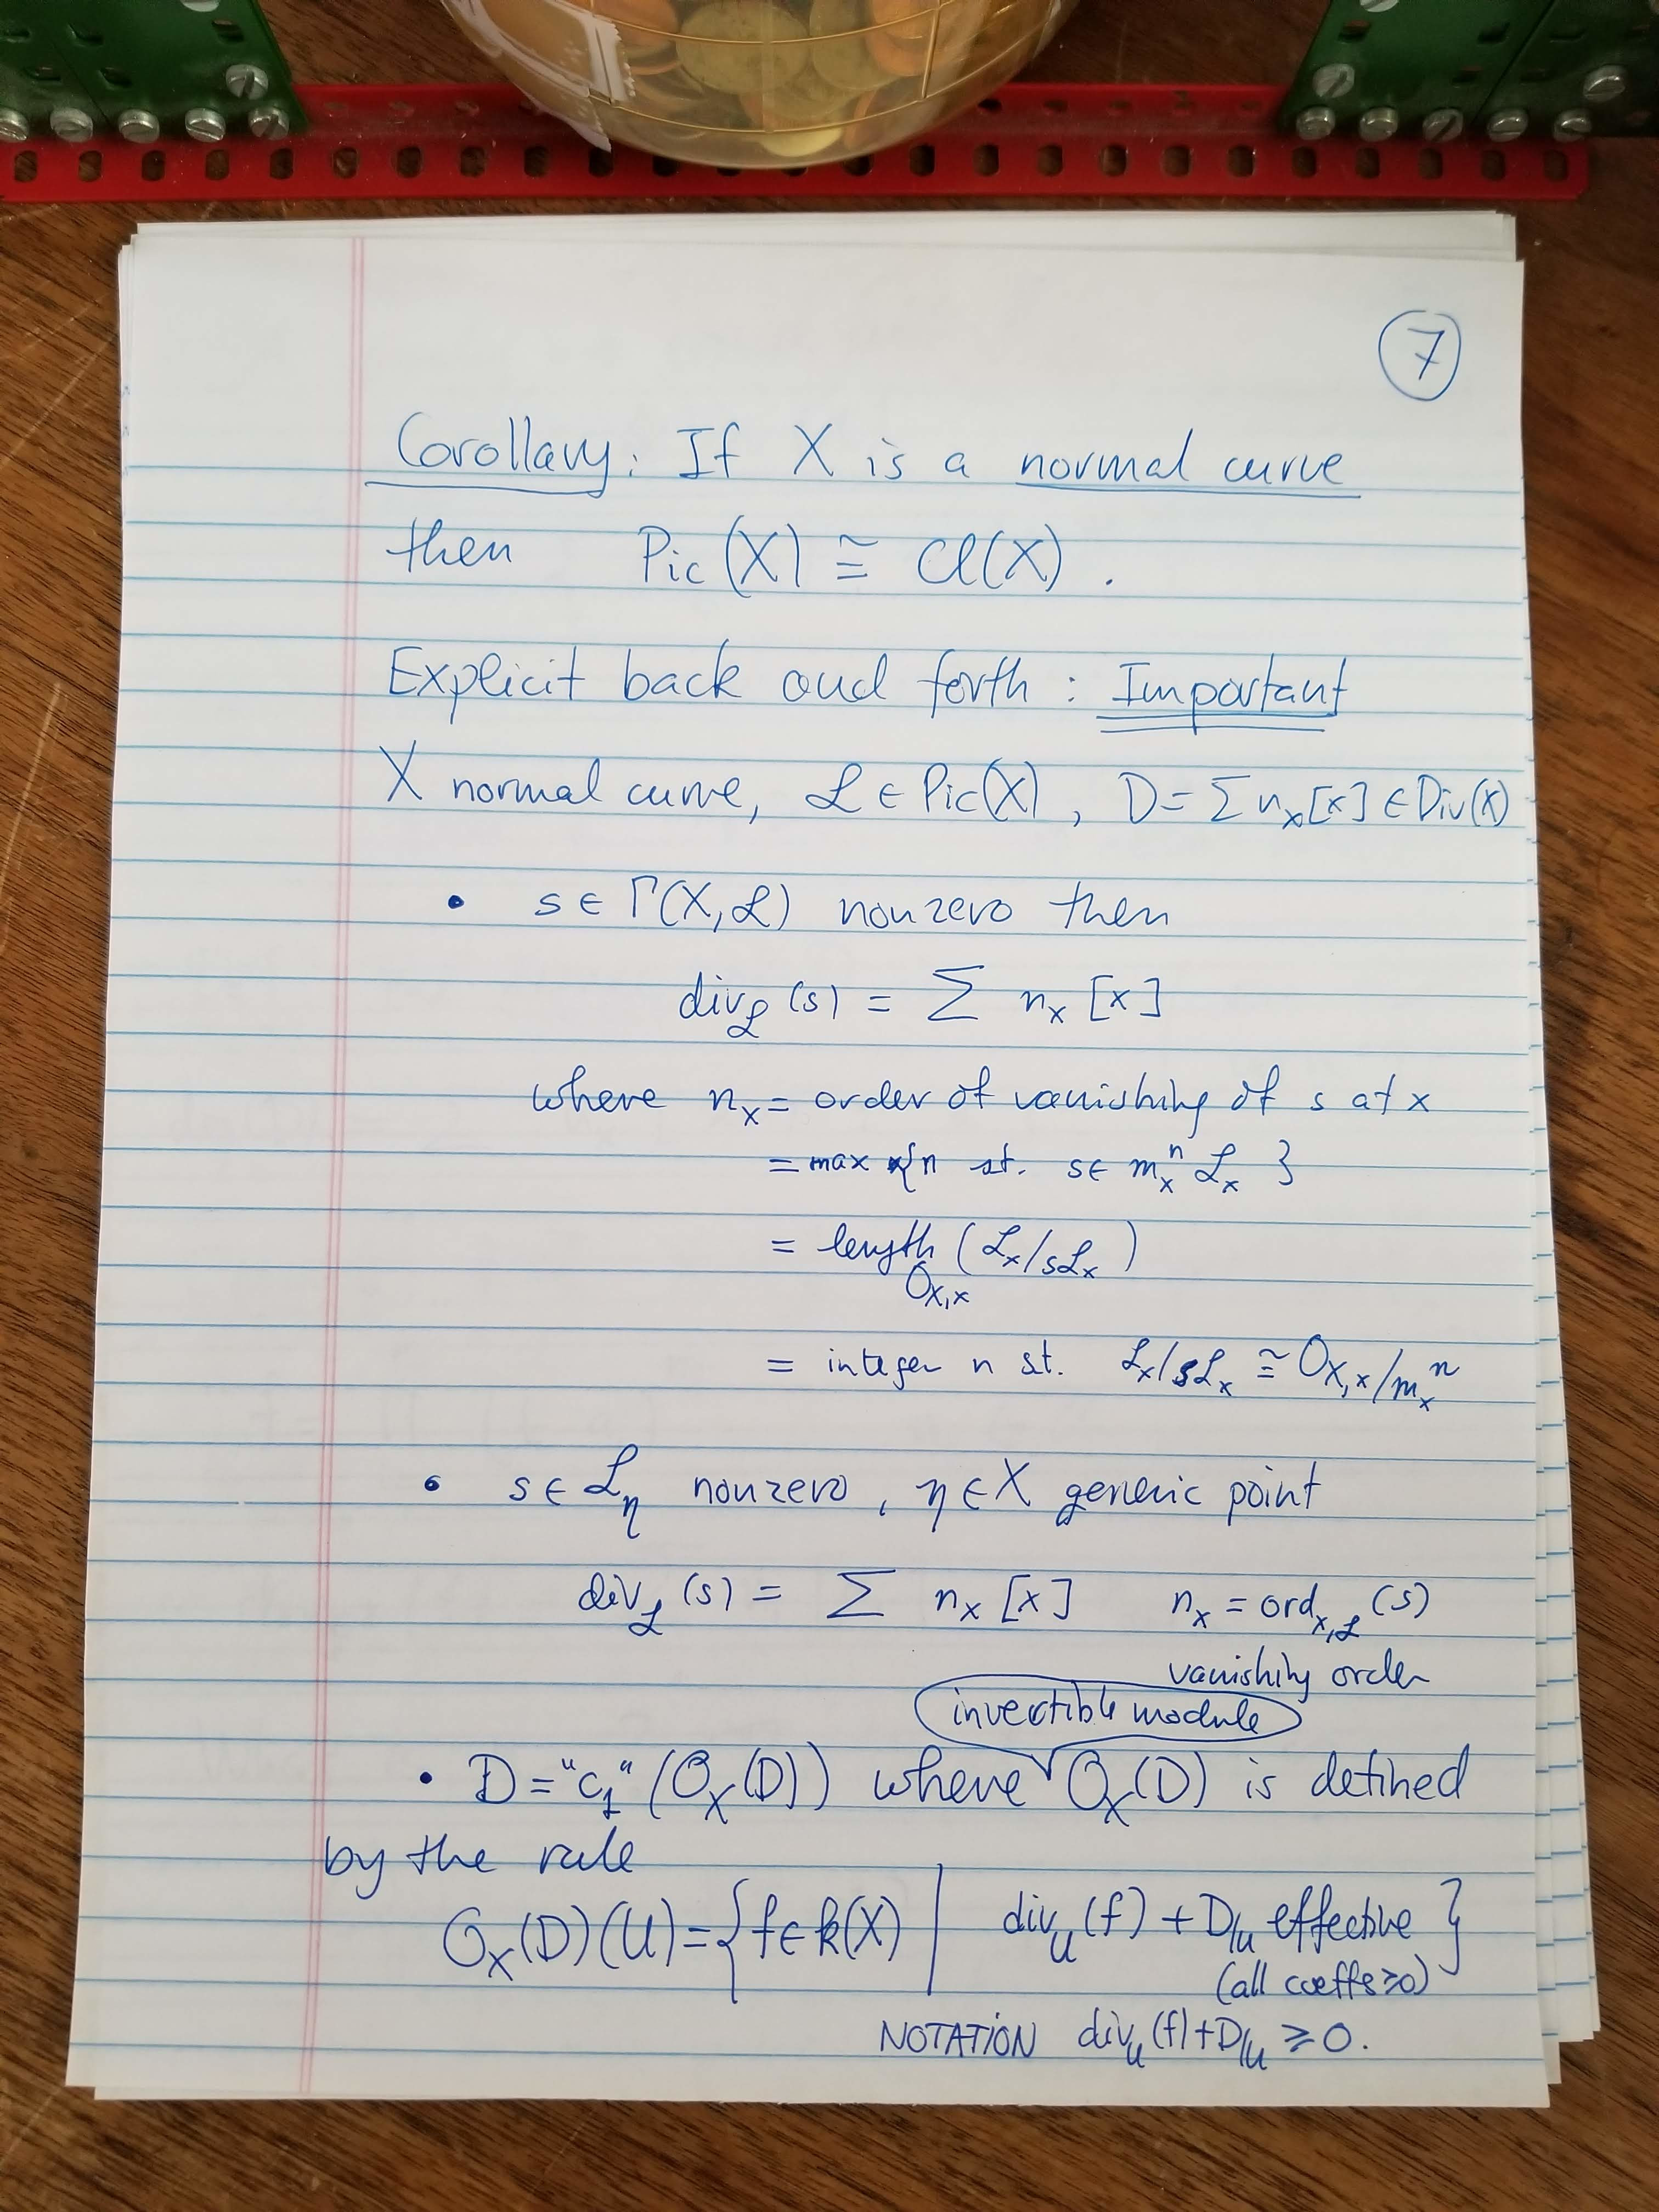 7
Corollary: If X is a normal curve
then Pic(X) ≅ Cl(X).
Explicit back and forth: Important
X normal curve, ℒ ∈ Pic(X), D = Σ n_x[x] ∈ Div(X)
• s ∈ Γ(X,ℒ) nonzero then
div_ℒ(s) = Σ n_x [x]
where n_x = order of vanishing of s at x
= max {n st. s ∈ m_x^n ℒ_x }
= length_{O_{X,x}} (ℒ_x/sℒ_x)
= integer n st. ℒ_x/sℒ_x ≅ O_{X,x}/m_x^n
• s ∈ ℒ_η nonzero, η ∈ X generic point
div_ℒ(s) = Σ n_x [x] n_x = ord_{x,ℒ}(s)
vanishing order
invertible module
• D = "c_1"(O_X(D)) where O_X(D) is defined
by the rule
O_X(D)(U) = { f ∈ k(X) | div_U(f) + D|_U effective }
(all coeffs ≥ 0)
NOTATION div_U(f) + D|_U ≥ 0.